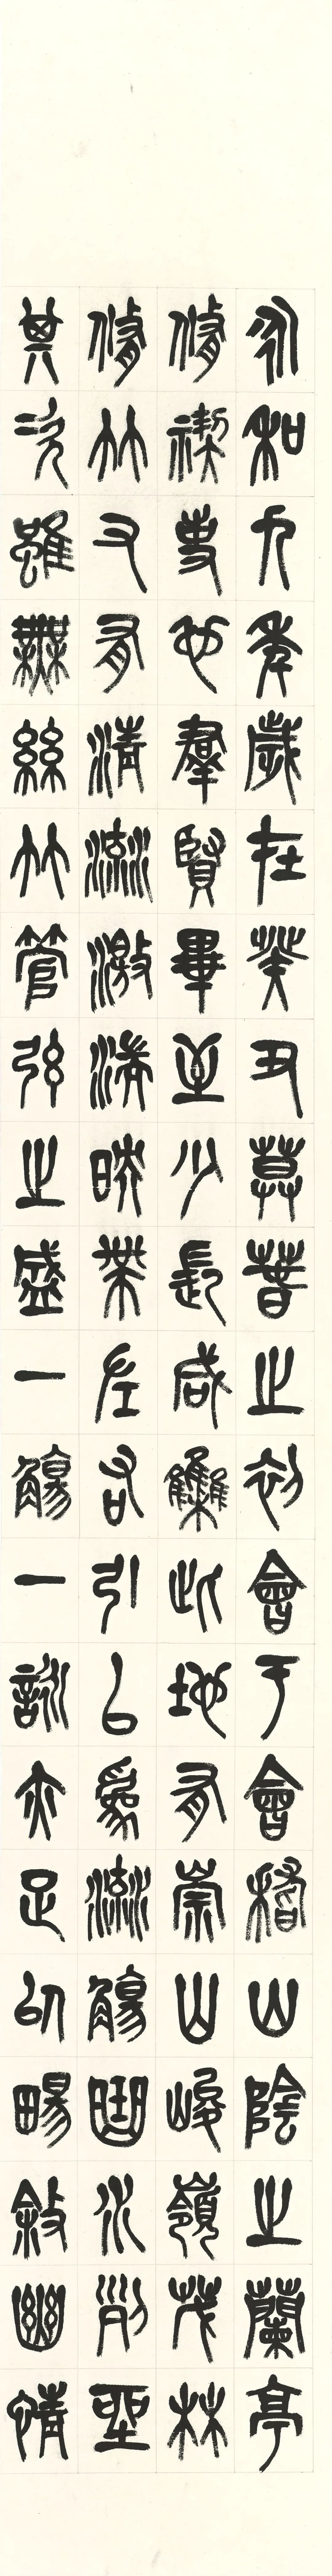 永和九年歲在癸丑暮春之初會于會稽山陰之蘭亭
脩禊事也羣賢畢至少長咸集此地有崇山峻嶺茂林
脩竹又有清流激湍暎帶左右引以為流觴曲水列坐
其次雖無絲竹管弦之盛一觴一詠亦足以暢敘幽情